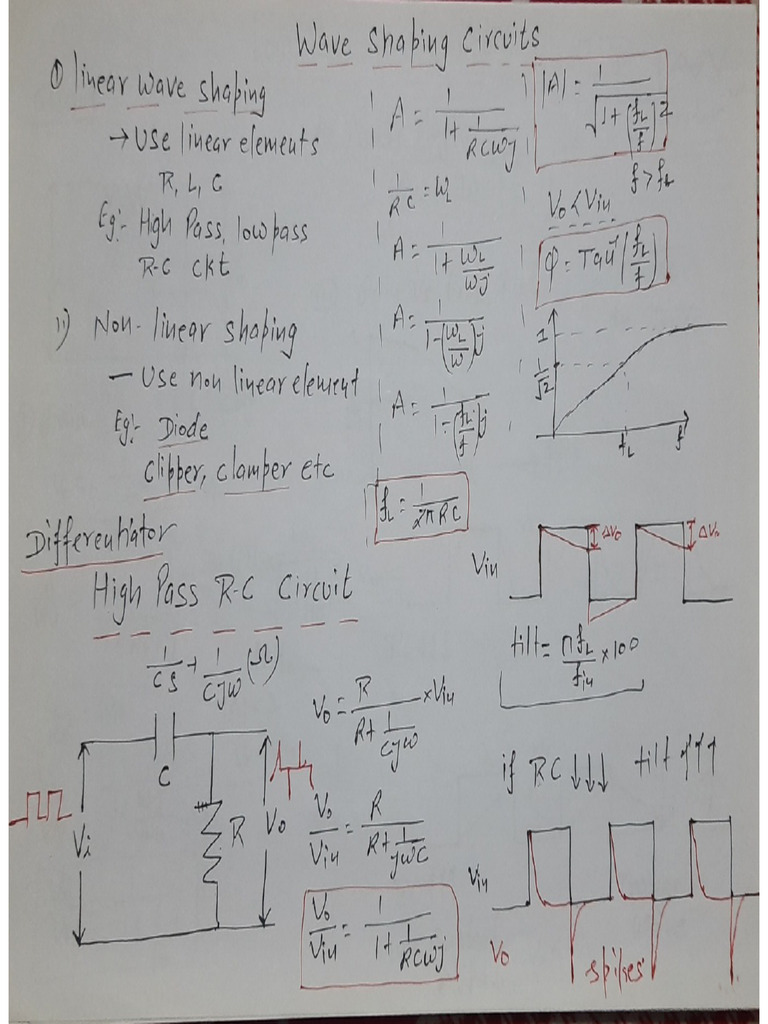 Wave Shaping Circuits
① linear wave shaping
→ Use linear elements
R, L, C
Eg:- High Pass, low pass
R-C ckt
ii) Non-linear shaping
— Use non linear element
Eg:- Diode
Clipper, clamper etc
A = 1/(1 + 1/(RCωj))
1/RC = ωL
A = 1/(1 + ωL/(ωj))
A = 1/(1 - (ωL/ω)j)
A = 1/(1 - (fL/f)j)
fL = 1/(2πRC)
|A| = 1/√(1 + (fL/f)²)
f > fL
Vo < Vin
φ = Tan⁻¹(fL/f)
1
1/√2
fL f
Differentiator
High Pass R-C Circuit
1/CS → 1/(Cjω) (Ω)
C
Vi
R Vo
Vo = R/(R + 1/(Cjω)) × Vin
Vo/Vin = R/(R + 1/(jωC))
Vo/Vin = 1/(1 + 1/(RCωj))
ΔVo ΔVo
Vin
tilt = πfL/fin × 100
if RC ↓↓↓ tilt ↑↑↑
Vin
Vo
spikes